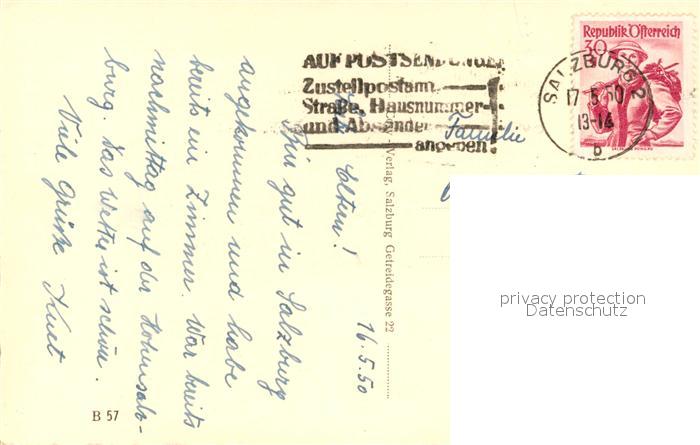 AUF POSTSENDUNGEN
Zustellpostamt
Straße, Hausnummer
und Absender
angeben!
Republik Österreich
30
SALZBURG 2
17.5.50
13-14
b
Familie
16.5.50
Eltern!
Bin gut in Salzburg
angekommen und habe
bereits ein Zimmer. War bereits
nachmittag auf der Hohensalz-
burg. Das Wetter ist schön.
Viele Grüße Kurt
Verlag, Salzburg Getreidegasse 22
B 57
privacy protection
Datenschutz